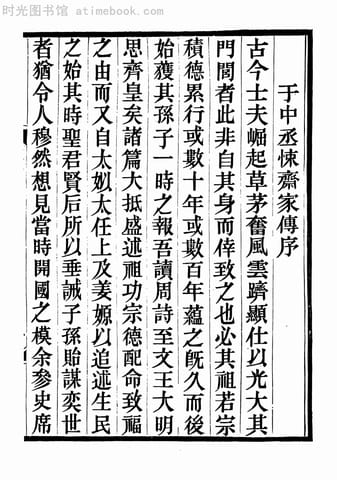 时光图书馆 atimebook.com
于中丞悚齋家傳序
古今士夫崛起草茅奮風雲躋顯仕以光大其
門閭者此非自其身而倖致之也必其祖若宗
積德累行或數十年或數百年蘊之旣久而後
始獲其孫子一時之報吾讀周詩至文王大明
思齊皇矣諸篇大抵盛述祖功宗德配命致福
之由而又自太姒太任上及姜嫄以追述生民
之始其時聖君賢后所以垂誡子孫貽謀奕世
者猶令人穆然想見當時開國之模余參史席